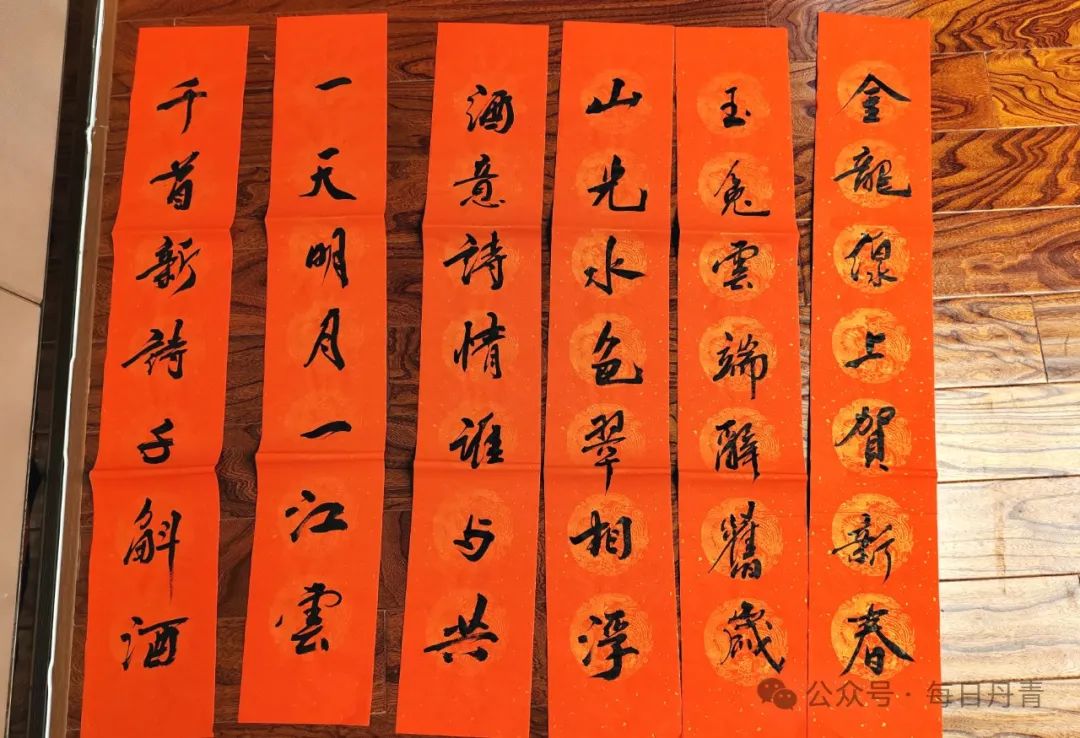 金龍線上賀新春
玉兔雲端辭舊歲
山光水色翠相浮
酒意詩情誰与共
一天明月一江雲
千首新詩千斛酒
公众号·每日丹青